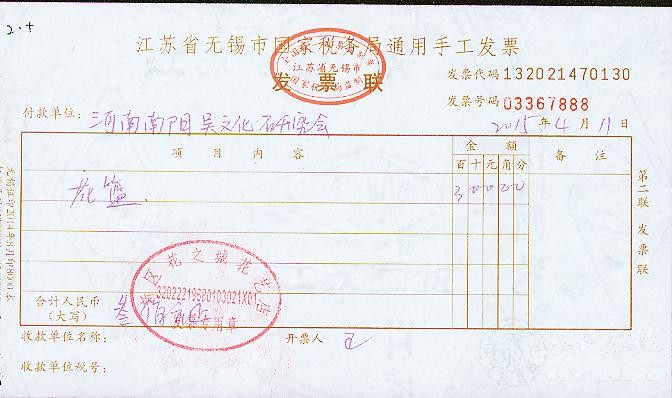 2.+
江苏省无锡市国家税务局通用手工发票
发票联
江苏省无锡市
国家税务局监制
发票代码 132021470130
发票号码 03367888
付款单位: 河南南阳吴文化研究会
2015 年 4 月 11 日
项目内容 金额 备注
百 十 元 角 分
花篮. 3 0 0 0 0
第二联 发票联
区花之城花艺店
32022219680103021X01
发票专用章
合计人民币
(大写) 叁佰元正
收款单位名称: 开票人 王
收款单位税号: